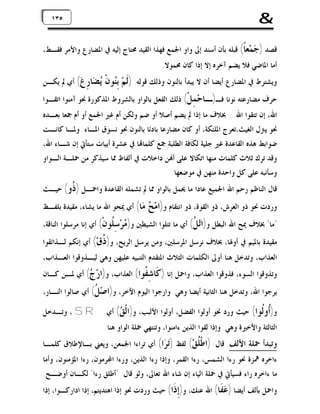 ١٣٥ &
قصد (جَمْعاً) قبله بأن أسند إلى واو الجمع فهذا القيد محتاج إليه في المضارع والأمر فقـــط،
أما الماضي فلا يضم آخره إلا إذا كان محمولا
ويشترط في المضارع أيضا أن لا يبدأ بالنون وذلك قوله (لَمْ بِنُونٍ يُضَارِعْ) أي لم يكـــن
حرف مضارعته نونا فــ(ـاحْمِلْ) ذلك الفعل بالواو بالشروط المذكورة نحو آمنوا اتقـــوا
الله، إن تتقوا الله بخلاف ما إذا لم يضم أصلا أو ضم ولكن أم غير الجمع أو أم جمعا بعـــده
نحو ينزل الغيث، تعرج الملئكة، أو كان مضارعا بادئا بالنون نحو نسوق المـــاء ولمـــا كانـــت
ضوابط هذه القاعدة غير جلية لكافة الطلبة جمع كلماتها في عشرة أبيات ستأتي إن شـــاء الله،
وقد ترك ثلاث كلمات منها اتكالا على أنهن داخلات في ألفاظ مما سيذكر من حملـــة الـــواو
وسأنبه على كل واحدة منهن في موضعها
قال الناظم رحم الله الجميع عادا ما يحمل بالواو مما لم تشمله القاعدة واحمـــل (ذُو) حيـــث
وردت نحو ذو العرش، ذو القوة، ذو انتقام و(امْحُ مَا) أي يمحو الله ما يشاء، مقيدة بلفـــظ
"ما" بخلاف يمح الله البطل و(اتْلُ) أي ما تتلوا الشيطين و(مُرْسِلُونَ) أي إنا مرسلوا الناقة،
مقيدة بالميم في أولها، بخلاف نرسل المرسلين، ومن يرسل الريح، و(ذُقْ) أي إنكم لـــذائقوا
العذاب، وتدخل هنا أولى الكلمات الثلاث المتقدم التنبيه عليهن وهي ليـــذوقوا العـــذاب،
وتذوقوا السوء، فذوقوا العذاب، واحمل إنا (كَاشِفُوا) العذاب، و(ارْجُ) أي لمـــن كـــان
يرجوا الله، وتدخل هنا الثانية أيضا وهي وارجوا اليوم الآخر، و(اصْلُ) أي صالوا النـــار،
و(أُولُوا) حيث ورد نحو أولوا الفضل، أولوا الألبب، و(الْقُ) أي SR ، وتـــدخل
الثالثة والأخيرة وهي وإذا لقوا الذين ءامنوا، وتنتهي حملة الواو هنا
وتبدأ حملة الألف قال (اطْلُقْ) لفظ (تَرَا) أي تراءا الجمعن، ويعني بـــالإطلاق كلمـــا
داخره همزة نحو رءا الشمس، رءا القمر، وإذا رءا الذين، ورءا المجرمون، رءا المؤمنون، وأما
ما داخره راء فسيأتي في حملة الياء إن شاء الله تعالى، ولو قال "أطلق رءا" لكـــان أوضـــح
واحمل بألف أيضا (عَفَا) الله عنك، و(إِذَا) حيث وردت نحو إذا اهتديتم، إذا اداركـــوا، إذا